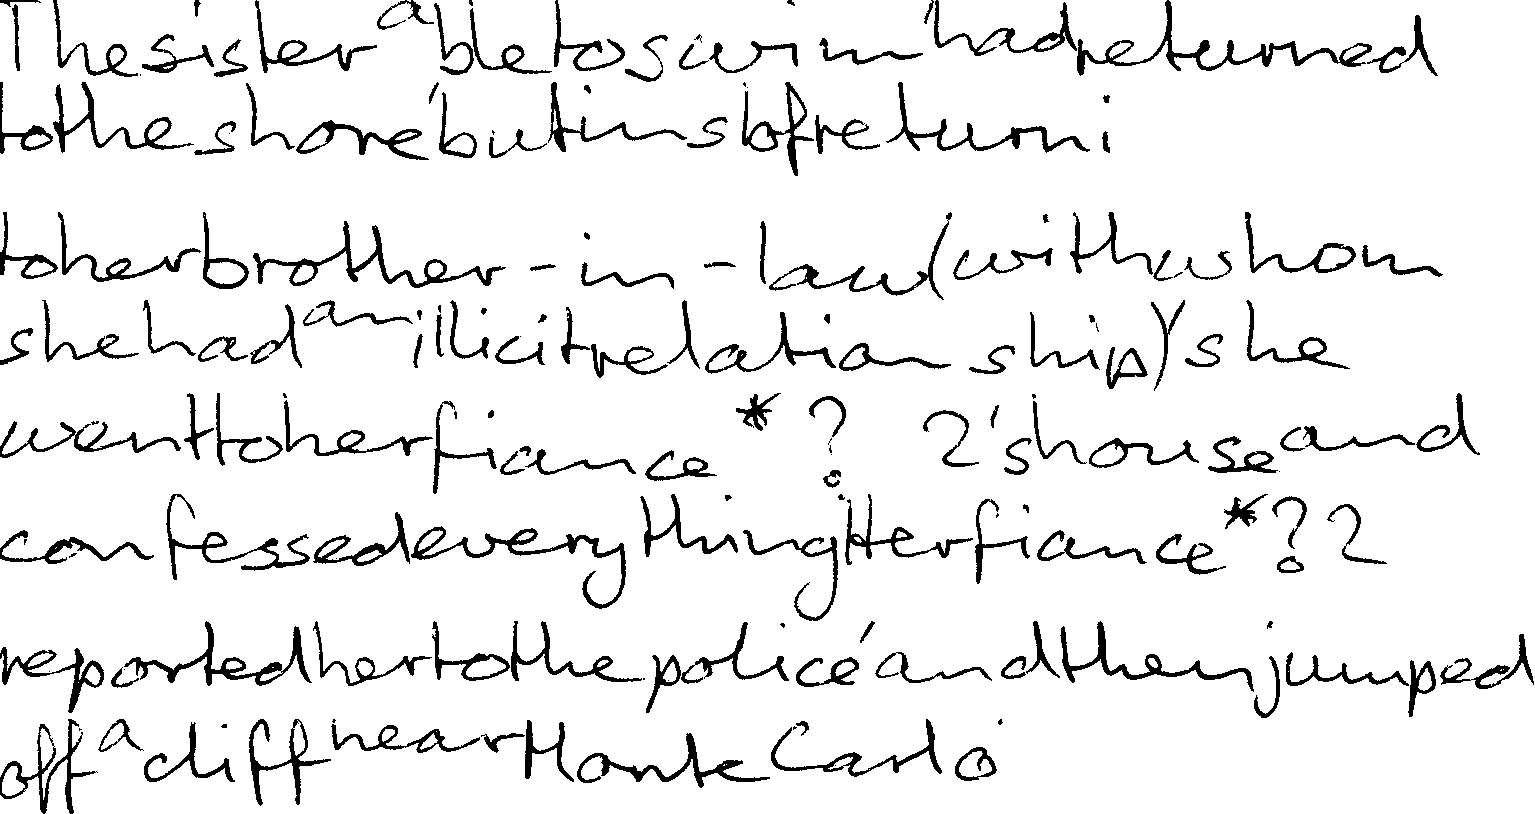 The sister able to swim had returned
to the shore but inst of returni
to her brother-in-law (with whom
she had an illicit relationship) she
went to her fiance*? 2's house and
confessed everything Her fiance*? 2
reported her to the police and then jumped
off a cliff near Monte Carlo